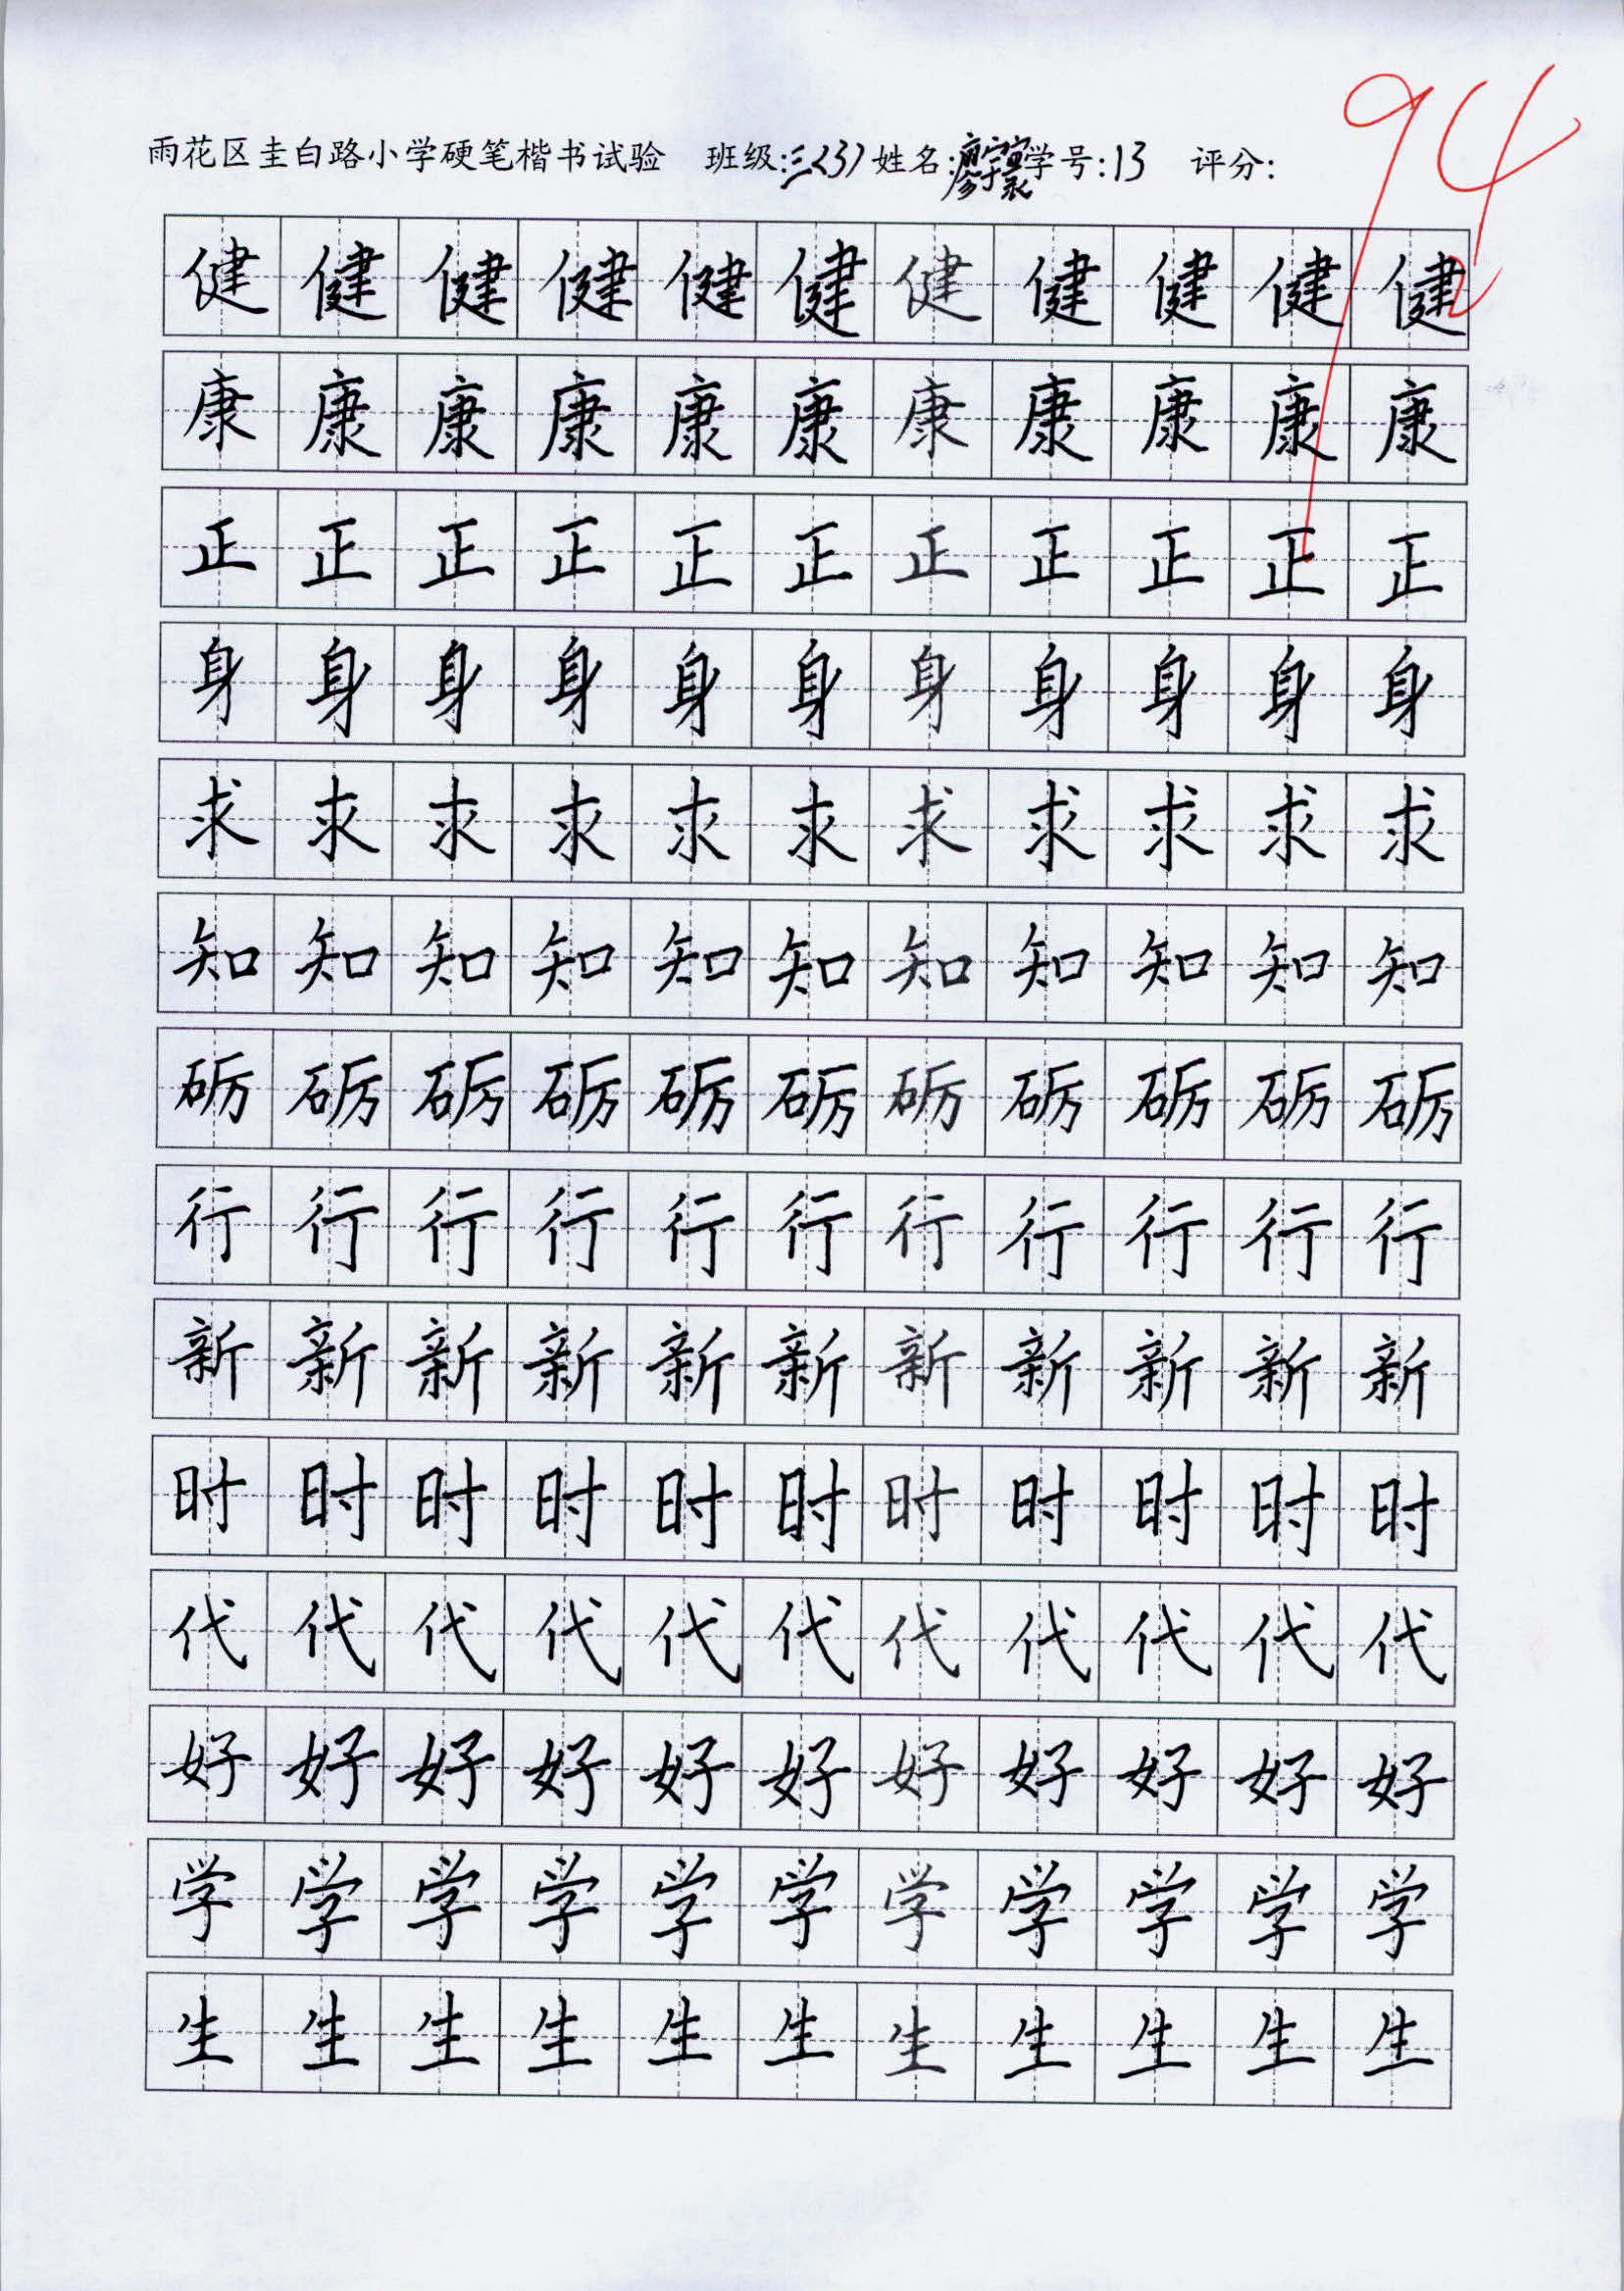 雨花区圭白路小学硬笔楷书试验 班级:三(3) 姓名:廖宇寰 学号:13 评分: 94
健健健健健健健健健健健
康康康康康康康康康康康
正正正正正正正正正正正
身身身身身身身身身身身
求求求求求求求求求求求
知知知知知知知知知知知
砺砺砺砺砺砺砺砺砺砺砺
行行行行行行行行行行行
新新新新新新新新新新新
时时时时时时时时时时时
代代代代代代代代代代代
好好好好好好好好好好好
学学学学学学学学学学学
生生生生生生生生生生生